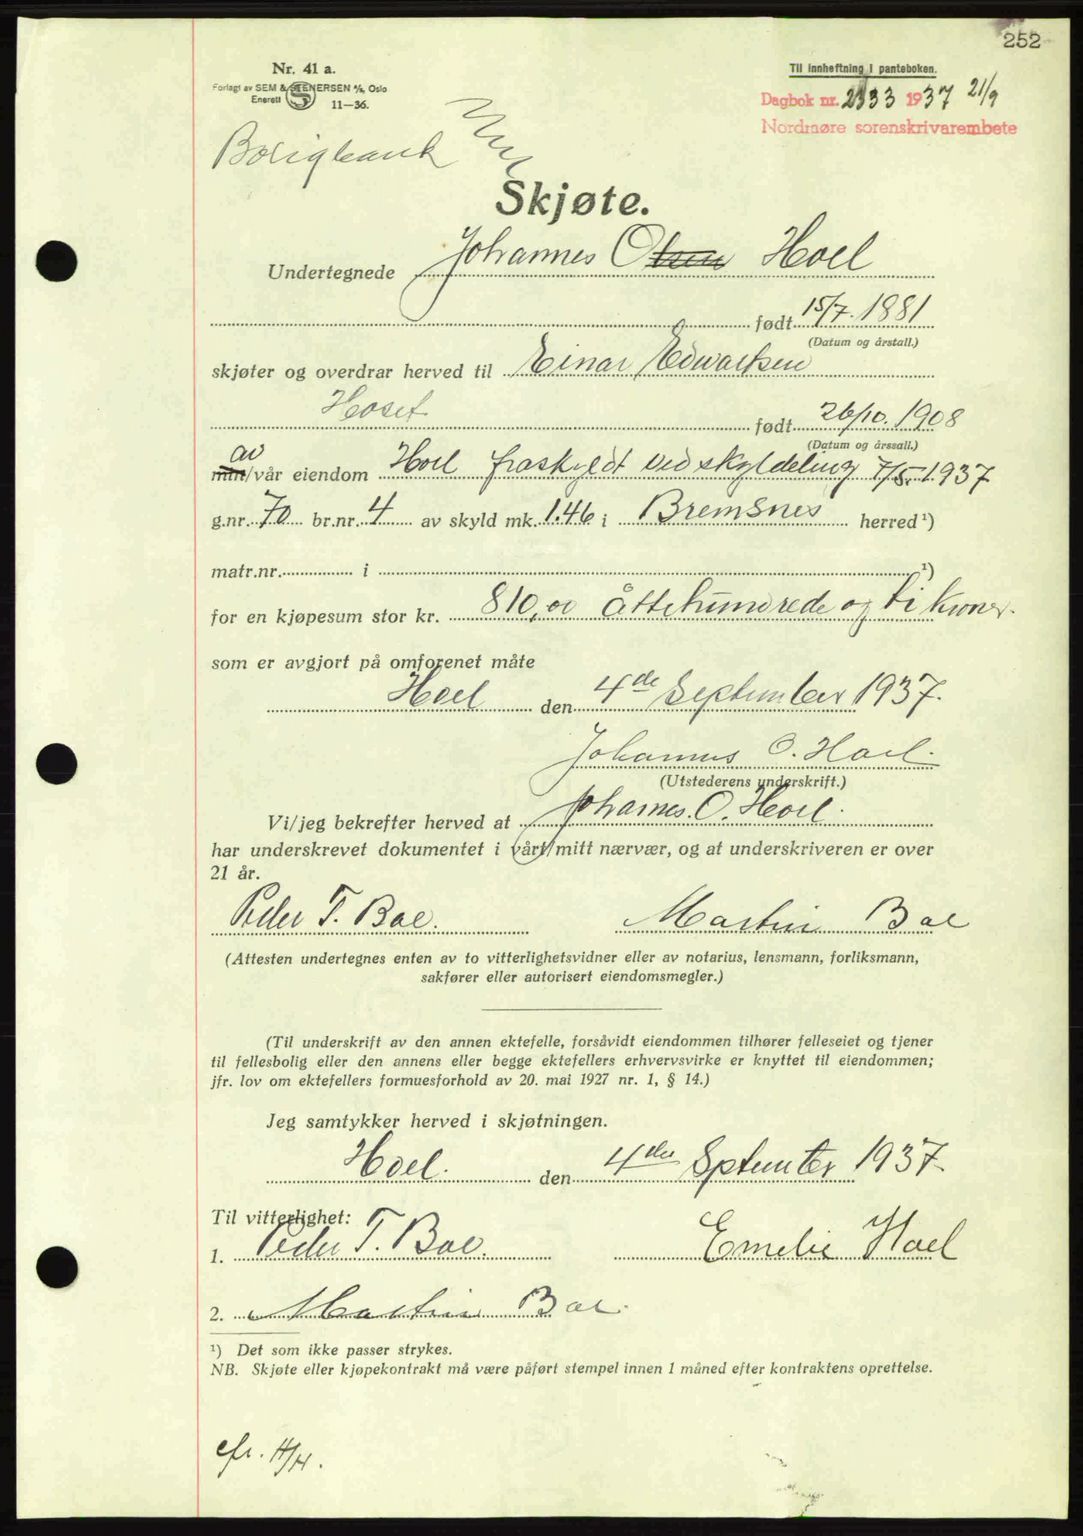 252
Nr. 41 a.
Forlagt av SEM & STENERSEN A/S, Oslo
Enerett 11—36.
Til innheftning i panteboken.
Dagbok nr. 2133 1937 21/9
Nordmøre sorenskrivarembete
Boligbank
Skjøte.
Undertegnede Johannes Olsen Hoel
født 15/7. 1881
(Datum og årstall.)
skjøter og overdrar herved til Einar Edwartsen
Hoset født 26/10. 1908
(Datum og årssall.)
av
min/vår eiendom Hoel fraskyldt ved skyldeling 7/5. 1937
g.nr. 70 br.nr. 4 av skyld mk. 1.46 i Bremsnes herred ¹)
matr.nr. i ¹)
for en kjøpesum stor kr. 810,00 åttehundrede og ti kroner.
som er avgjort på omforenet måte
Hoel den 4de September 1937.
Johannes O. Hoel.
(Utstederens underskrift.)
Vi/jeg bekrefter herved at Johannes. O. Hoel.
har underskrevet dokumentet i vårt/mitt nærvær, og at underskriveren er over
21 år.
Peder T. Boe. Martin Boe
(Attesten undertegnes enten av to vitterlighetsvidner eller av notarius, lensmann, forliksmann,
sakfører eller autorisert eiendomsmegler.)
(Til underskrift av den annen ektefelle, forsåvidt eiendommen tilhører felleseiet og tjener
til fellesbolig eller den annens eller begge ektefellers erhvervsvirke er knyttet til eiendommen;
jfr. lov om ektefellers formuesforhold av 20. mai 1927 nr. 1, § 14.)
Jeg samtykker herved i skjøtningen.
Hoel. den 4de September 1937.
Til vitterlighet:
1. Peder T. Boe. Emelie Hoel
2. Martin Boe.
¹) Det som ikke passer strykes.
NB. Skjøte eller kjøpekontrakt må være påført stempel innen 1 måned efter kontraktens oprettelse.